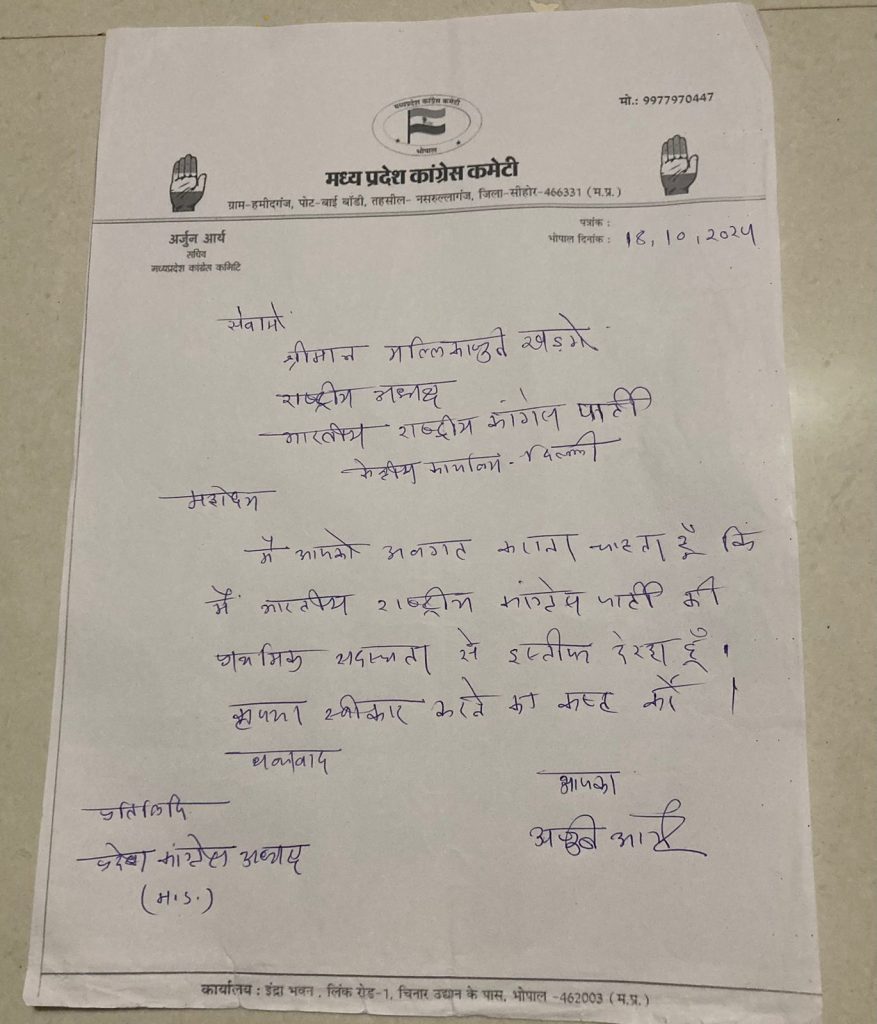 मध्यप्रदेश कांग्रेस कमेटी
भोपाल
मो.: 9977970447
मध्य प्रदेश कांग्रेस कमेटी
ग्राम-हमीदगंज, पोट-बाई बॉडी, तहसील- नसरुल्लागंज, जिला-सीहोर-466331 (म.प्र.)
अर्जुन आर्य
सचिव
मध्यप्रदेश कांग्रेस कमिटि
पत्रांक :
भोपाल दिनांक : 18,10,2024
सेवामें
श्रीमान मल्लिकार्जुन खड़गे
राष्ट्रीय अध्यक्ष
भारतीय राष्ट्रीय कांग्रेस पार्टी
केन्द्रीय कार्यालय - दिल्ली
महोदय
मैं आपको अवगत कराना चाहता हूँ कि
मैं भारतीय राष्ट्रीय कांग्रेस पार्टी की
प्राथमिक सदस्यता से इस्तीफा दे रहा हूँ ।
कृपया स्वीकार करने का कष्ट करें ।
धन्यवाद
आपका
अर्जुन आर्य
प्रतिलिपि
प्रदेश कांग्रेस अध्यक्ष
कार्यालय : इंद्रा भवन , लिंक रोड-1, चिनार उद्यान के पास, भोपाल -462003 (म.प्र.)